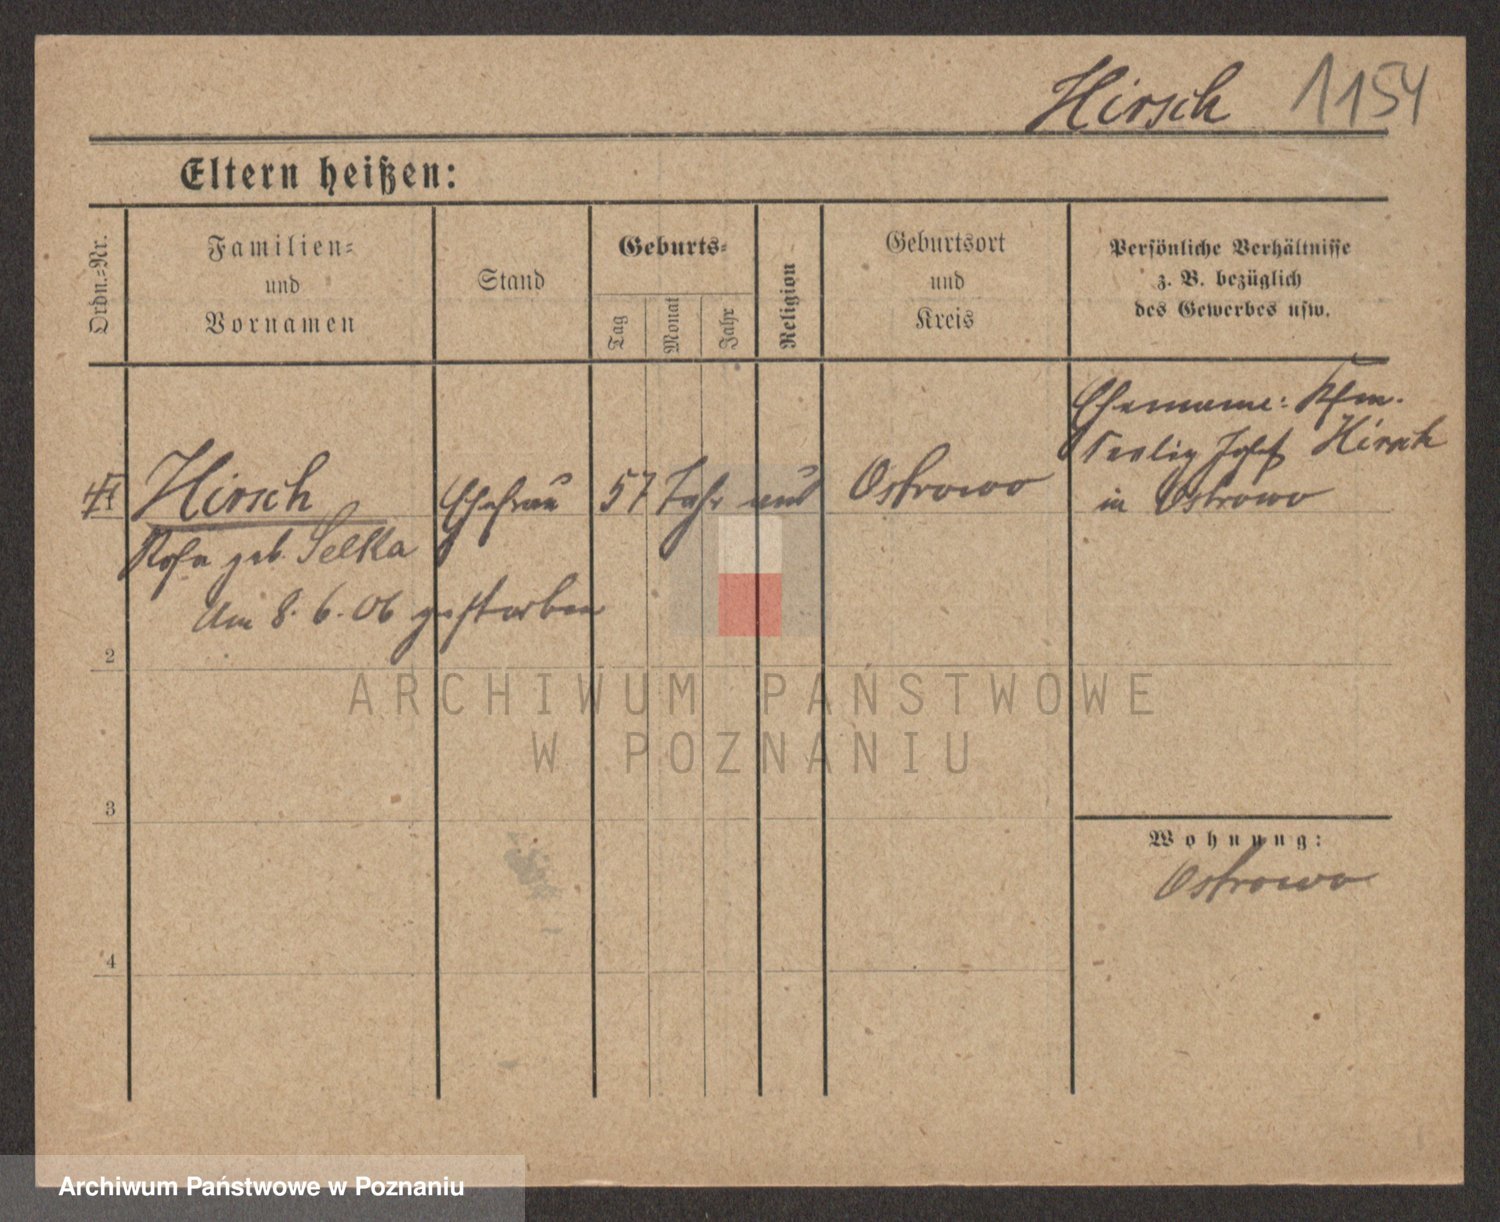 Hirsch 1154
Eltern heißen:
Ordn.-Nr.
Familien-
und
Vornamen
Stand
Geburts-
Tag
Monat
Jahr
Religion
Geburtsort
und
Kreis
Persönliche Verhältnisse
z. B. bezüglich
des Gewerbes usw.
Hirsch
Rosa geb. Selka
Am 8. 6. 06 gestorben
Ehefrau
57 Jahr aus
Ostrowo
Ehemann: Kfm.
Seelig Josef Hirsch
in Ostrowo
2
3
4
Wohnung:
Ostrowo
ARCHIWUM PAŃSTWOWE
W POZNANIU
Archiwum Państwowe w Poznaniu